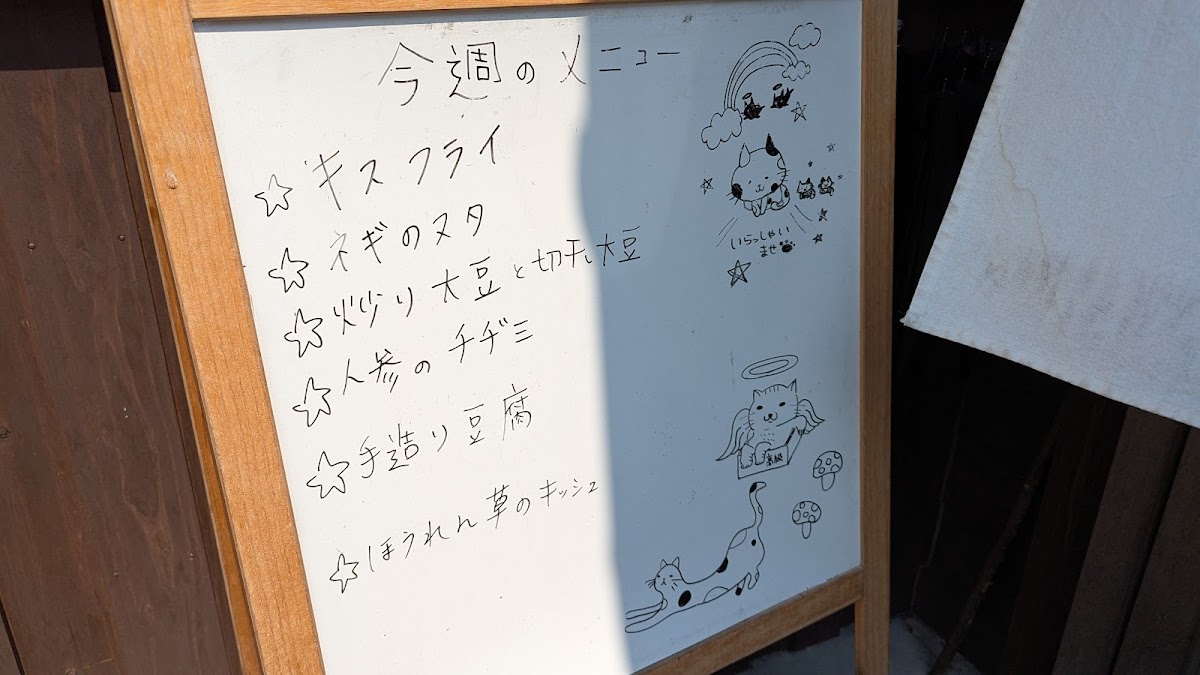 今週のメニュー
☆キスフライ
☆ネギのヌタ
☆炒り大豆と切干大豆
☆人参のチヂミ
☆手造り豆腐
☆ほうれん草のキッシュ
いらっしゃい
ませ